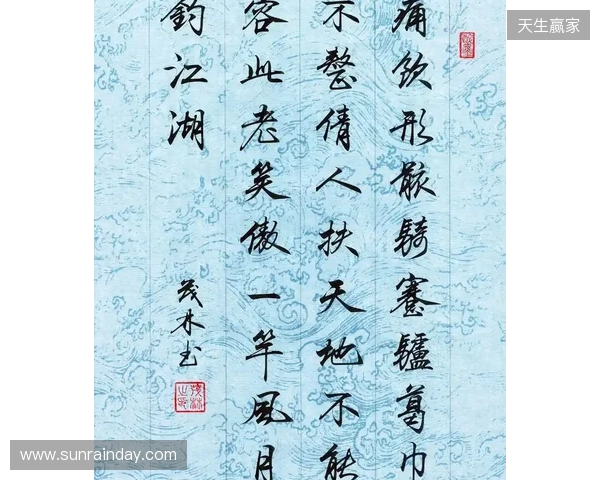 天生赢家
痛飲形骸騎蹇驢葛巾
不整倩人扶天地不能
容此老笑傲一竿風月
釣江湖
茂林书
www.sunrainday.com